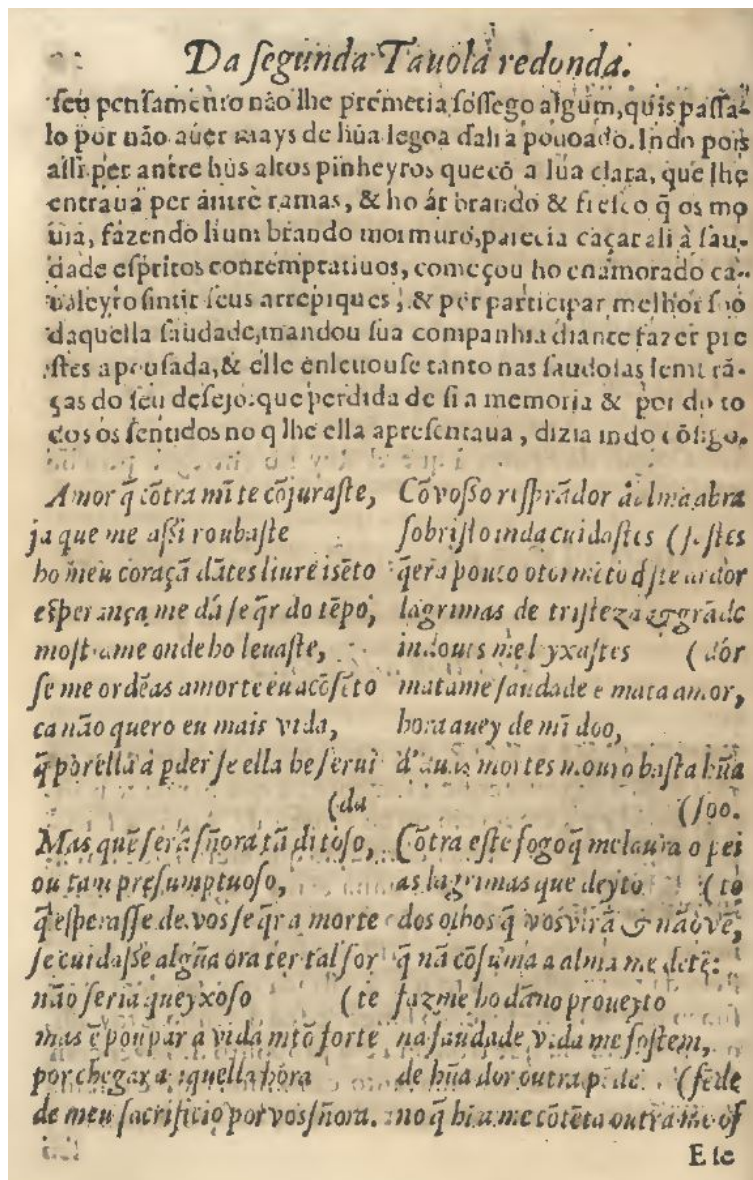 Da ſegunda Tauola redonda.
ſeu penſamento não lhe prometia ſoſſego algum, quis paſſa-
lo por não auer mays de hũa legoa dali a pouoado. Indo pois
aſſi per antre hũs altos pinheyros que cõ a lũa clara, que lhe
entraua per antre ramas, & ho ár brando & freſco q̃ os mo
uia, fazendo hum brando mormuro, parecia caçar ali à ſau-
dade eſpritos contempratiuos, começou ho enamorado ca-
ualeyro ſintir ſeus arrepiques, & per participar melhor ſoo
daquella ſaudade, mandou ſua companhia diante fazer pre
ſtes a pouſada, & elle enleuouſe tanto nas ſaudoſas lembrã-
ças do ſeu deſejo: que perdida de ſi a memoria & por do to
dos os ſentidos no q̃ lhe ella apreſentaua, dizia indo cõſigo.
Amor q̃ cõtra mĩ te cõjuraſte,
ja que me aſſi roubaſte
ho meu coraçã dãtes liure iſẽto
eſperança me dá ſe q̃r do tẽpo,
moſtrame onde ho leuaſte,
ſe me ordẽas a morte eu acõſẽto
ca não quero eu mais vida,
q̃ por ella a pder ſe ella he ſerui
(da
Mas quẽ ſerá ſñora tã ditoſo,
ou tam preſumptuoſo,
q̃ eſperaſſe de vos ſe q̃r a morte
ſe cuidaſſe algũa ora ter tal ſor
não ſeria queyxoſo (te
mas ẽ poupar a vida mtõ forte
por chegar a aquella hora
de meu ſacrificio por vos ſñora.
Cõ voſſo riſprãdor a alma abra
ſobriſto inda cuidaſtes (ſaſtes
q̃ era pouco o tormẽto dſte ardor
lagrimas de triſteza & grãde
indouis me lyxaſtes (dór
matáme ſaudade e mata amor,
hora auey de mĩ doo,
d'duas mortes mouro baſta hũa
(ſoo.
Cõtra eſte fogo q̃ me laura o pei
as lagrimas que deyto (to
dos olhos q̃ vos virã & não vẽ,
q̃ nã cõſuma a alma me detẽ:
fazme ho dãno proueyto
na ſaudade vida me ſoſtem,
de hũa dor outra pẽde (fẽde
no q̃ hũa me cõtẽta outra me of
E ſe